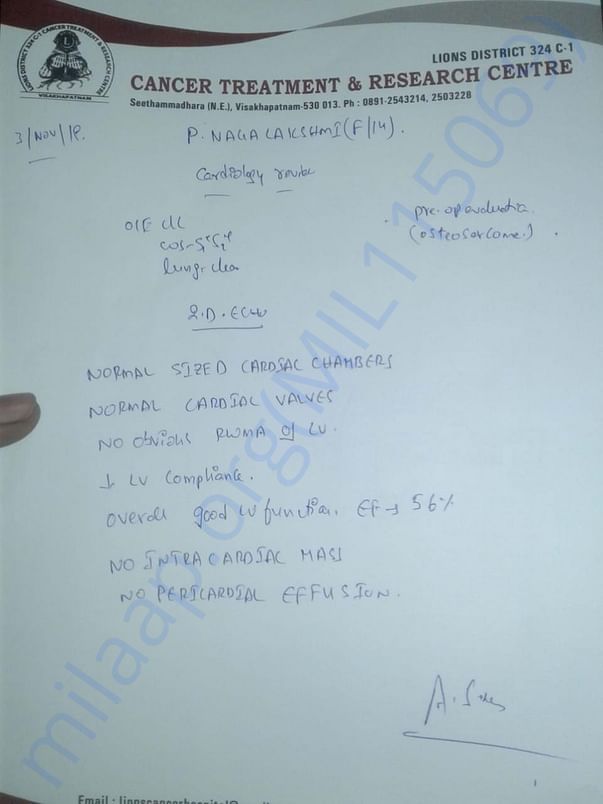 LIONS DISTRICT 324 C-1 CANCER TREATMENT & RESEARCH CENTRE
VISAKHAPATNAM
LIONS DISTRICT 324 C-1
CANCER TREATMENT & RESEARCH CENTRE
Seethammadhara (N.E.), Visakhapatnam-530 013. Ph : 0891-2543214, 2503228
3/NOV/18.
P. NAGALAKSHMI (F/14).
Cardiology review
pre-op evaluation.
(osteosarcome.)
O/E
lungs clear
2.D. ECHO
NORMAL SIZED CARDIAC CHAMBERS
NORMAL CARDIAC VALVES
NO obvious RWMA of LV.
↓ LV Compliance.
overall good LV function. EF → 56%
NO INTRACARDIAC MASS
NO PERICARDIAL EFFUSION.
Email :
milaap.org(MIL115069)